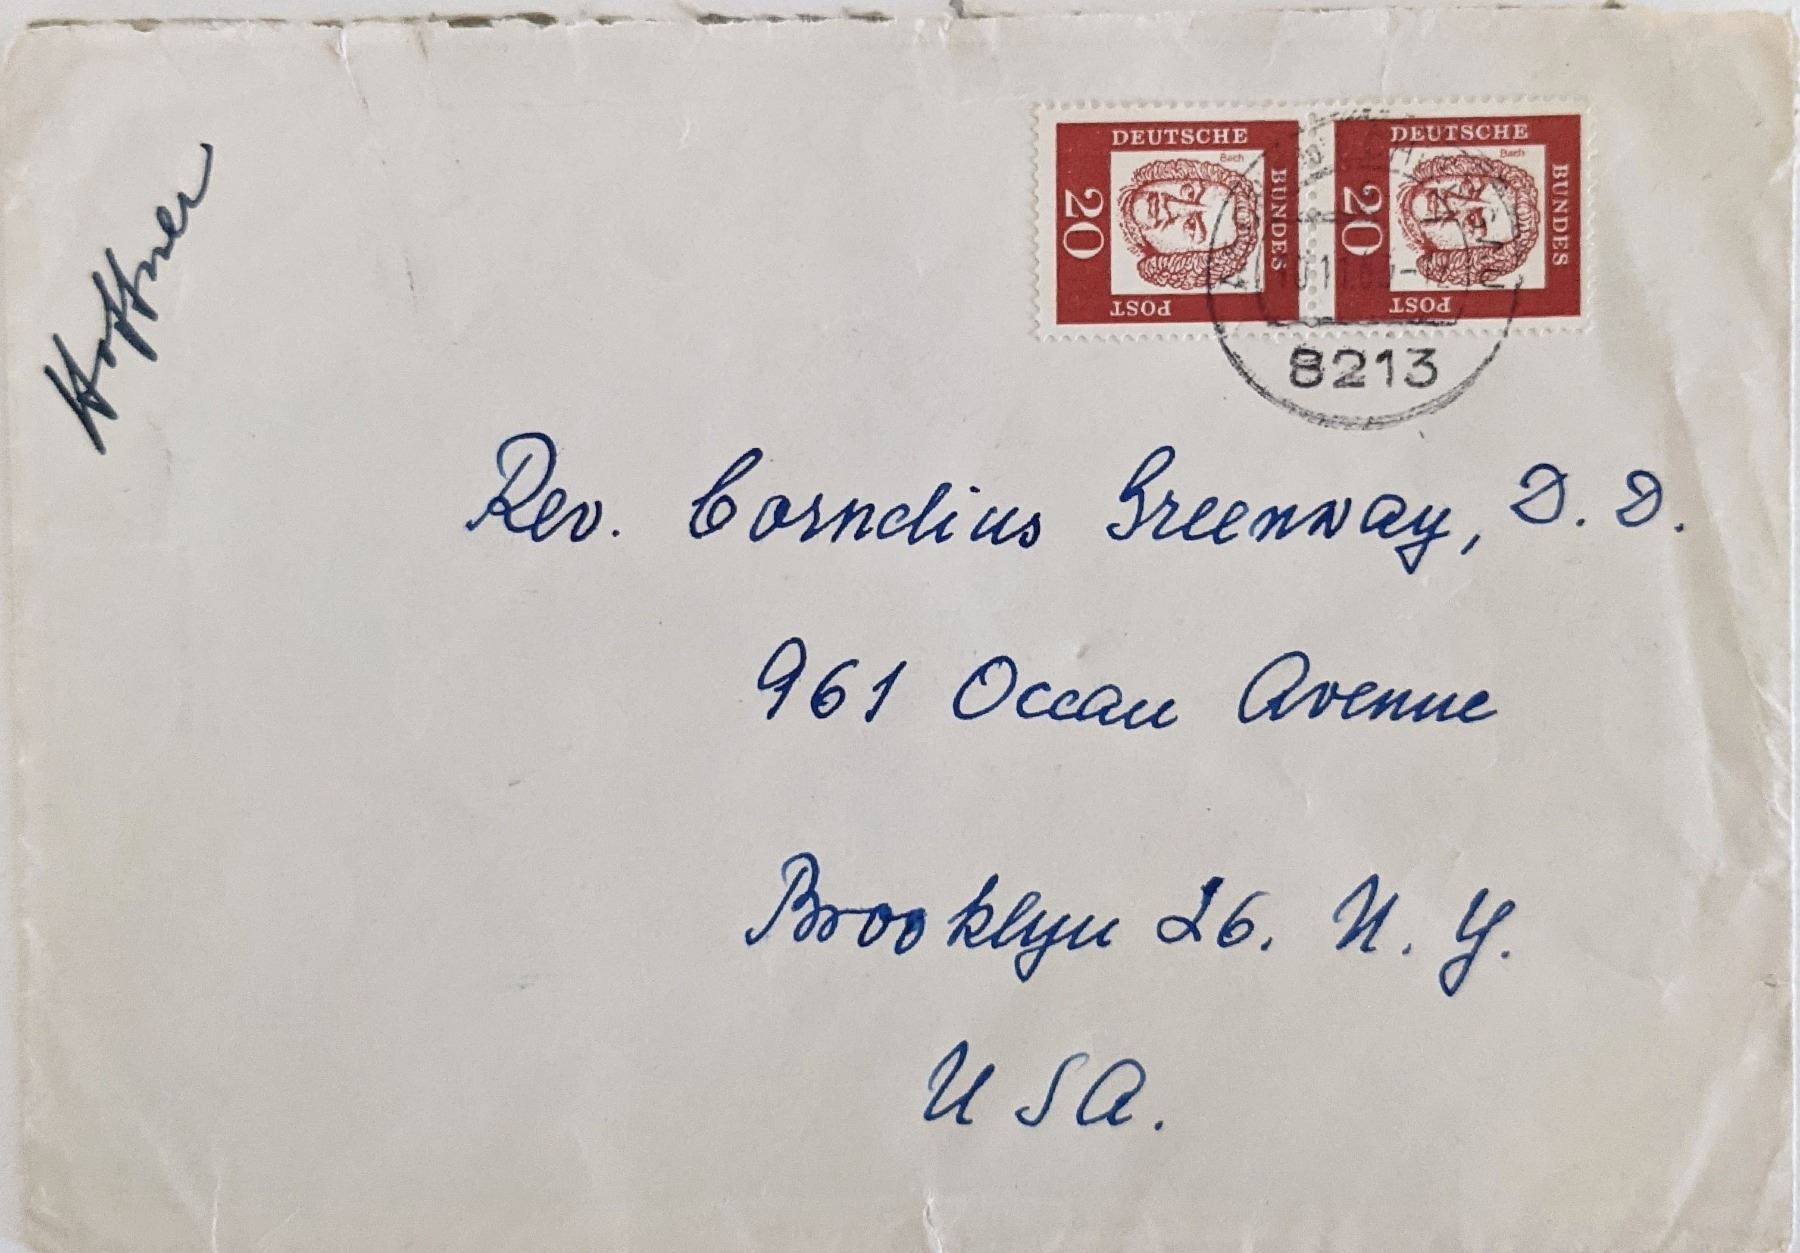 Hoffner
DEUTSCHE
BUNDES
POST
20
Bach
DEUTSCHE
BUNDES
POST
20
Bach
8213
Rev. Cornelius Greenway, D. D.
961 Ocean Avenue
Brooklyn 26. N. Y.
USA.